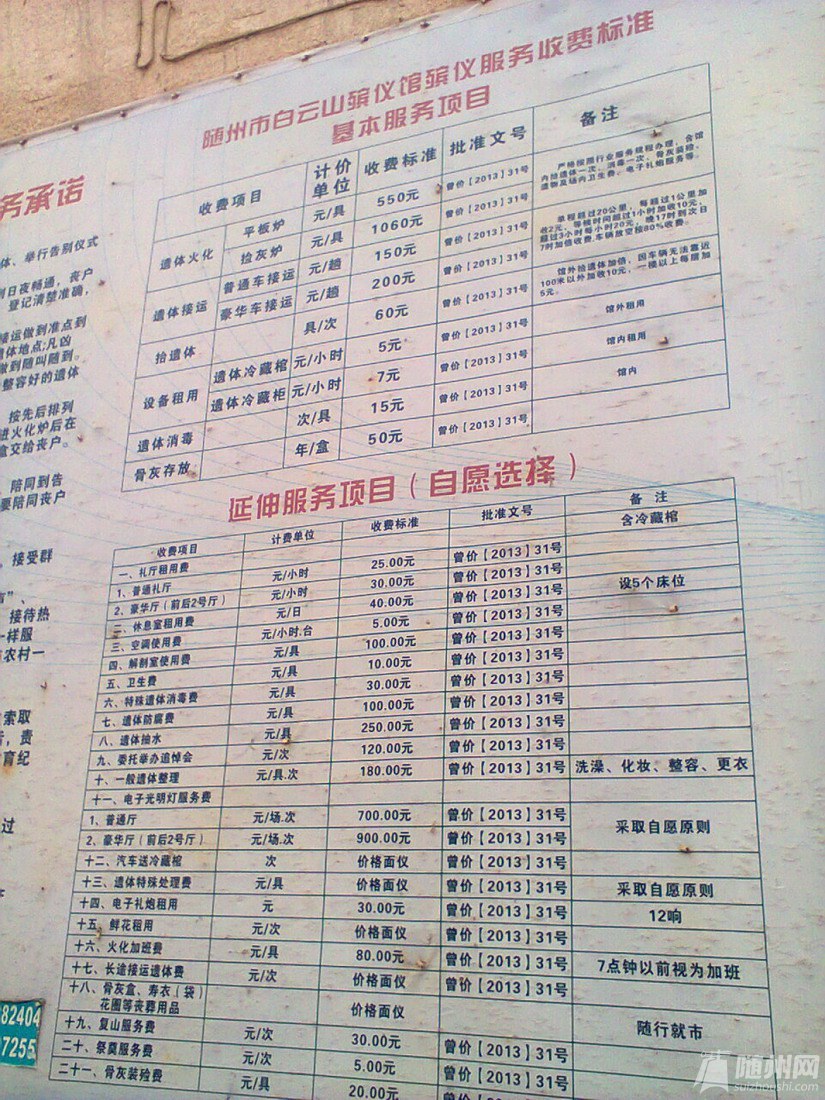 务承诺
体、举行告别仪式
到日夜畅通，丧户
登记清楚准确，
接运做到准点到
遗体地点;凡凶
做到随叫随到。
整容好的遗体
按先后排列
进火化炉后在
盒交给丧户。
陪同到告
要陪同丧户
接受群
接待热
一样服
农村一
索取
责
育纪
过
82404
7255
随州市白云山殡仪馆殡仪服务收费标准
基本服务项目
收费项目 计价单位 收费标准 批准文号 备注
遗体火化 平板炉 元/具 550元 曾价【2013】31号 严格按照行业服务规程办理，含馆内抬遗体一次、消毒一次、骨灰装殓、遗物及场内卫生费。电子礼炮服务等。
捡灰炉 元/具 1060元 曾价【2013】31号
遗体接运 普通车接运 元/趟 150元 曾价【2013】31号 单程超过20公里，每超过1公里加收2元，等候时间超过1小时加收10元，超过3小时每小时20元，晚17时到次日7时加倍收费.车辆放空按80%收费。
豪华车接运 元/趟 200元 曾价【2013】31号
抬遗体 具/次 60元 曾价【2013】31号 馆外抬遗体加倍，因车辆无法靠近100米以外加收10元，一楼以上每层加5元。
设备租用 遗体冷藏棺 元/小时 5元 曾价【2013】31号 馆外租用
遗体冷藏柜 元/小时 7元 曾价【2013】31号 馆内租用
遗体消毒 次/具 15元 曾价【2013】31号 馆内
骨灰存放 年/盒 50元 曾价【2013】31号
延伸服务项目（自愿选择）
收费项目 计费单位 收费标准 批准文号 备 注
一、礼厅租用费 含冷藏棺
1、普通礼厅 元/小时 25.00元 曾价【2013】31号
2、豪华厅（前后2号厅） 元/小时 30.00元 曾价【2013】31号
二、休息室租用费 元/日 40.00元 曾价【2013】31号 设5个床位
三、空调使用费 元/小时.台 5.00元 曾价【2013】31号
四、解剖室使用费 元/具 100.00元 曾价【2013】31号
五、卫生费 元/具 10.00元 曾价【2013】31号
六、特殊遗体消毒费 元/具 30.00元 曾价【2013】31号
七、遗体防腐费 元/具 100.00元 曾价【2013】31号
八、遗体抽水 元/具 250.00元 曾价【2013】31号
九、委托举办追悼会 元/次 120.00元 曾价【2013】31号
十、一般遗体整理 元/具.次 180.00元 曾价【2013】31号 洗澡、化妆、整容、更衣
十一、电子光明灯服务费
1、普通厅 元/场.次 700.00元 曾价【2013】31号 采取自愿原则
2、豪华厅（前后2号厅） 元/场.次 900.00元 曾价【2013】31号
十二、汽车送冷藏棺 次 价格面仪 曾价【2013】31号
十三、遗体特殊处理费 元/具 价格面仪 曾价【2013】31号 采取自愿原则
十四、电子礼炮租用 元 30.00元 曾价【2013】31号 12响
十五、鲜花租用 元/次 价格面仪 曾价【2013】31号
十六、火化加班费 元/具 80.00元 曾价【2013】31号 7点钟以前视为加班
十七、长途接运遗体费 元/次 价格面仪 曾价【2013】31号
十八、骨灰盒、寿衣（袋）花圈等丧葬用品 价格面仪 随行就市
十九、复山服务费 元/次 30.00元 曾价【2013】31号
二十、祭奠服务费 元/次 5.00元 曾价【2013】31号
二十一、骨灰装殓费 元/具 20.00元 曾价【2013】31号
随州网
suizhoushi.com